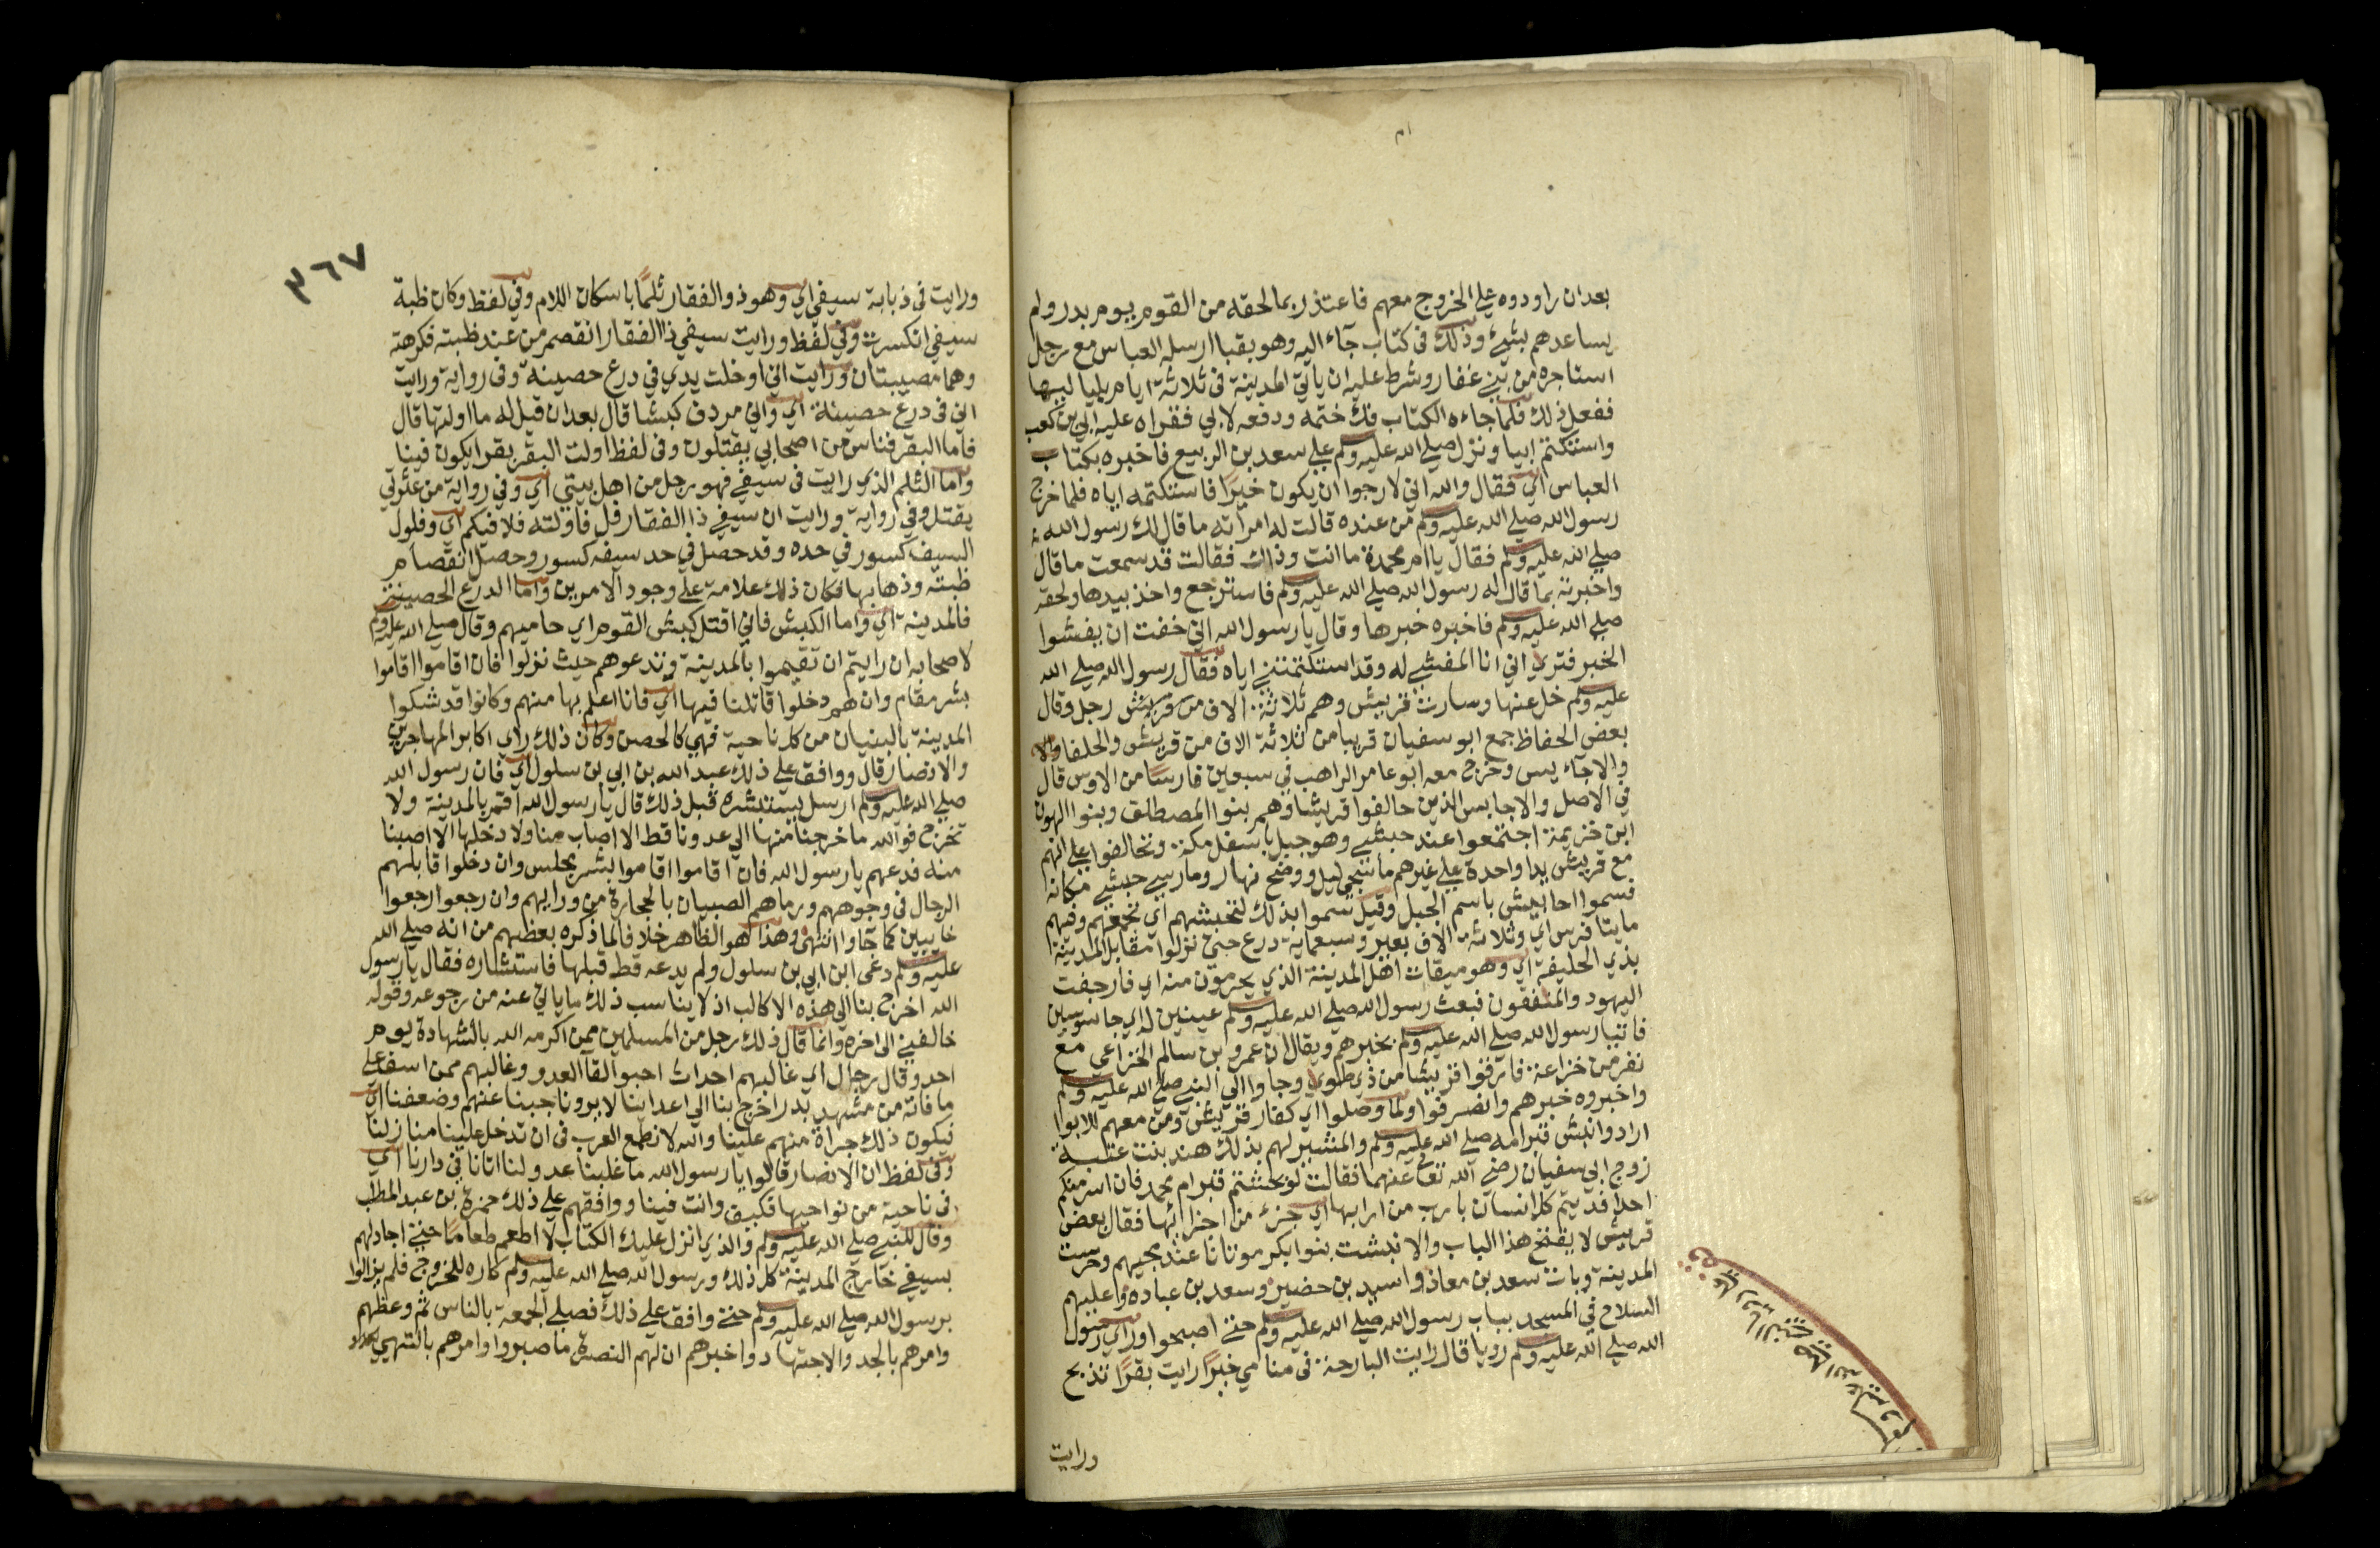 بعد ان راودوه علي الخروج معهم فاعتذر بما لحقه من القوم يوم بدر ولم
يساعدهم بشيء وذلك في كتاب جآء اليه وهو بقبا ارسله العباس مع رجل
استاجره من بني غفار وشرط عليه ان ياتي المدينة في ثلاثة ايام بلياليها
ففعل ذلك فلما جاءه الكتاب فك ختمه ودفعه لابي فقراه عليه ابي بن كعب
واستكتم ابيا ونزل صلي الله عليه وسلم علي سعد بن الربيع فاخبره بكتاب
العباس اي فقال والله اني لارجوا ان يكون خيرًا فاستكتمه اياه فلما خرج
رسول الله صلي الله عليه وسلم من عنده قالت له امراته ما قال لك رسول الله
صلي الله عليه وسلم فقال يا ام محمدة ما انت وذاك فقالت قد سمعت ما قال
واخبرته بما قال له رسول الله صلي الله عليه وسلم فاسترجع واخذ بيدها ولحقه
صلي الله عليه وسلم فاخبره خبرها وقال يا رسول الله اني خفت ان يفشوا
الخبر فتري اني انا المفشي له وقد استكتمتني اياه فقال رسول الله صلي الله
عليه وسلم خل عنها وسارت قريش وهم ثلاثة الاف من قريش رجل وقال
بعض الحفاظ جمع ابو سفيان قريبا من ثلاثة الاف من قريش والحلفا
والاحآبيس وخرج معه ابو عامر الراهب في سبعين فارسًا من الاوس قال
في الاصل والاحابيس الذين حالفوا قريشا وهم بنوا المصطلق وبنوا الهون
ابن خزيمة اجتمعوا عند حبشي وهو جبل باسفل مكة وتحالفوا علي انهم
مع قريش يدا واحدة علي غيرهم ما سجي ليل ووضح نهار وما رسي حبشي مكانه
فسموا احابيش باسم الجبل وقيل سموا بذلك لتحبشهم اي تجمعهم وفيهم
مايتا فرس اي وثلاثة الاف بعير وسبعماية درع حتي نزلوا مقابل المدينة
بذي الحليفة اي وهو ميقات اهل المدينة الذي يحرمون منه اي فارجفت
اليهود والمنفقون فبعث رسول الله صلي الله عليه وسلم عينين له اي جاسوسين
فاتيا رسول الله صلي الله عليه وسلم بخبرهم ويقال ان عمرو بن سالم الخزاعي مع
نفر من خزاعة فارقوا قريشا من ذي طوي وجاوا الي النبي صلي الله عليه وسلم
واخبروه خبرهم وانصرفوا ولما وصلوا اي كفار قريش ومن معهم للابوا
ارادوا نبش قبر امه صلي الله عليه وسلم والمشير لهم بذلك هند بنت عتبة
زوج ابي سفيان رضي الله تعالي عنهما فقالت لو بحثتم قبر ام محمد فان اسر منكم
احدا فديتم كل انسان بارب من ارابها اي جزء من اجزائها فقال بعض
قريش لا يفتح هذا الباب والا نبشت بنوا بكر موتانا عند مجيهم وحرست
المدينة وبات سعد بن معاذ واسيد بن حضير وسعد بن عباده وعليهم
السلاح في المسجد بباب رسول الله صلي الله عليه وسلم حتي اصبحوا وراي رسول
الله صلي الله عليه وسلم رويا قال رايت البارحة في منامي خيرًا رايت بقرًا تذبح
ورايت
٣٦٧
ورايت في ذبابة سيفي اي وهو ذو الفقار ثلمًا باسكان اللام وفي لفظ وكان ظبة
سيفي انكسرت وفي لفظ ورايت سيفي ذا الفقار انقصم من عند ظبته فكرهته
وهما مصيبتان ورايت اني ادخلت يدي في درع حصينة وفي رواية ورايت
اني في درع حصينة اي واني مردف كبشا قال بعد ان قيل له ما اولتها قال
فاما البقر فناس من اصحابي يقتلون وفي لفظ اولت البقر بقرا يكون فينا
واما الثلم الذي رايت في سيفي فهو رجل من اهل بيتي اي وفي رواية من عترتي
يقتل وفي رواية ورايت ان سيفي ذا الفقار فل فاولته فلا فيكم اي وفلول
السيف كسور في حده وقد حصل في حد سيفه كسور وحصل انقصام
ظبته وذهابها فكان ذلك علامة علي وجود الامرين واما الدرع الحصينة
فالمدينة اي واما الكبش فاني اقتل كبش القوم اي حاميهم وقال صلي الله عليه وسلم
لاصحابه ان رايتم ان تقيموا بالمدينة وتدعوهم حيث نزلوا فان اقاموا اقاموا
بشر مقام وان هم دخلوا قاتلنا فيها اي فانا اعلم بها منهم وكانوا قد شبكوا
المدينة بالبنيان من كل ناحية فهي كالحصن وكان ذلك راي اكابر المهاجرين
والانصار قال ووافق علي ذلك عبد الله بن ابي بن سلول اي فان رسول الله
صلي الله عليه وسلم ارسل يستشره قبل ذلك قال يا رسول الله اقم بالمدينة ولا
تخرج فوالله ما خرجنا منها الي عدونا قط الا اصاب منا ولا دخلها الا اصبنا
منه فدعهم يا رسول الله فان اقاموا اقاموا بشر مجلس وان دخلوا قابلهم
الرجال في وجوههم ورماهم الصبيان بالحجارة من ورايهم وان رجعوا رجعوا
خايبين كما جاوا انتهى وهذا هو الظاهر خلافا لما ذكره بعظهم من انه صلي الله
عليه وسلم دعي ابن ابي بن سلول ولم يدعه قط قبلها فاستشاره فقال يا رسول
الله اخرج بنا الي هذه الاكالب اذ لا يناسب ذلك ما ياتي عنه من رجوعه وقوله
خالفني الي اخره وانما قال ذلك رجل من المسلمين ممن اكرمه الله بالشهادة يوم
احد وقال رجال اي غالبهم احداث احبوا لقآ العدو وغالبهم ممن اسف علي
ما فاته من مشهد بدر اخرج بنا الي اعداينا لا يرونا جبنا عنهم وضعفنا اي
فيكون ذلك جراة منهم علينا والله لا نطمع العرب في ان تدخل علينا منازلنا
وفي لفظ ان الانصار قالوا يا رسول الله ما غلبنا عدو لنا اتانا في دارنا اي
في ناحية من نواحيها فكيف وانت فينا ووافقهم علي ذلك حمزة بن عبد المطلب
وقال للنبي صلي الله عليه وسلم والذي انزل عليك الكتاب لا اطعم طعامًا حتي اجادلهم
بسيفي خارج المدينة كل ذلك ورسول الله صلي الله عليه وسلم كاره للخروج فلم يزالوا
برسول الله صلي الله عليه وسلم حتي وافق علي ذلك فصلي الجمعة بالناس ثم وعظهم
وامرهم بالجد والاجتهاد واخبرهم ان لهم النصرة ما صبروا وامرهم بالتهيي